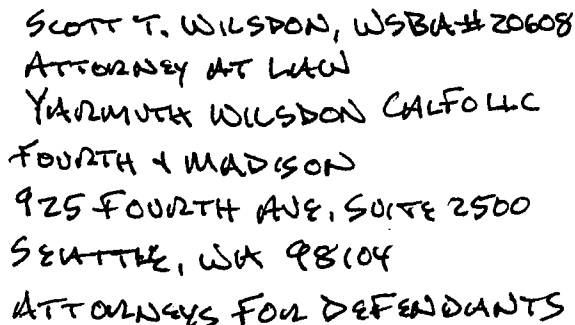 SCOTT T. WILSDON, WSBA# 20608
ATTORNEY AT LAW
YARMUTH WILSDON CALFO LLC
FOURTH & MADISON
925 FOURTH AVE, SUITE 2500
SEATTLE, WA 98104
ATTORNEYS FOR DEFENDANTS